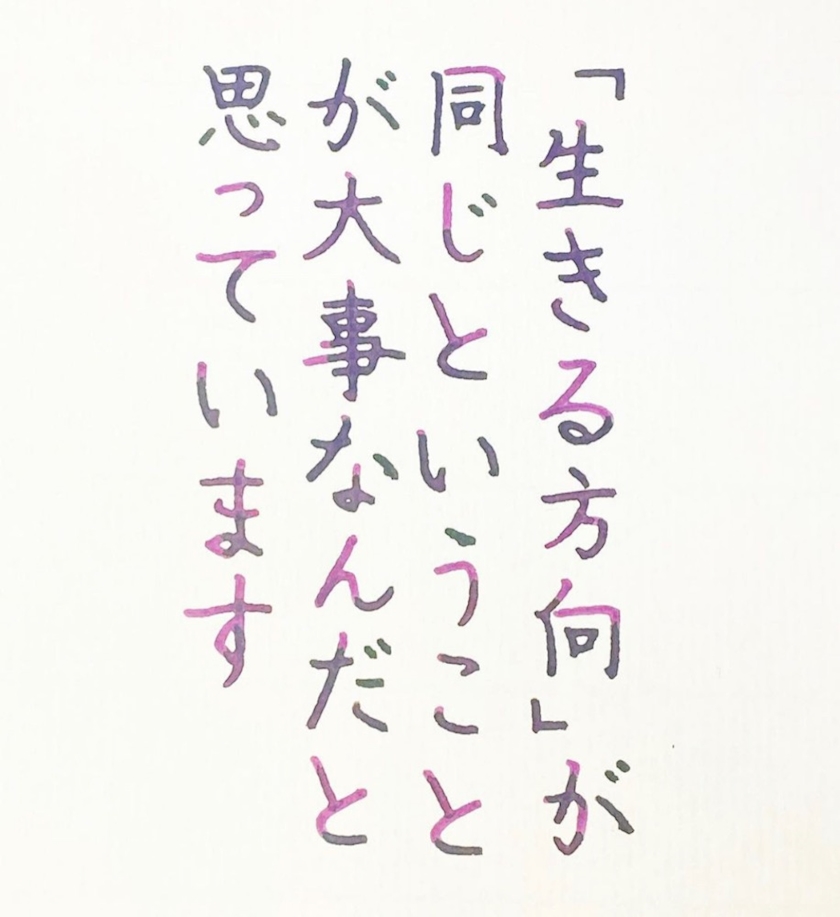 「生きる方向」が
同じということ
が大事なんだと
思っています